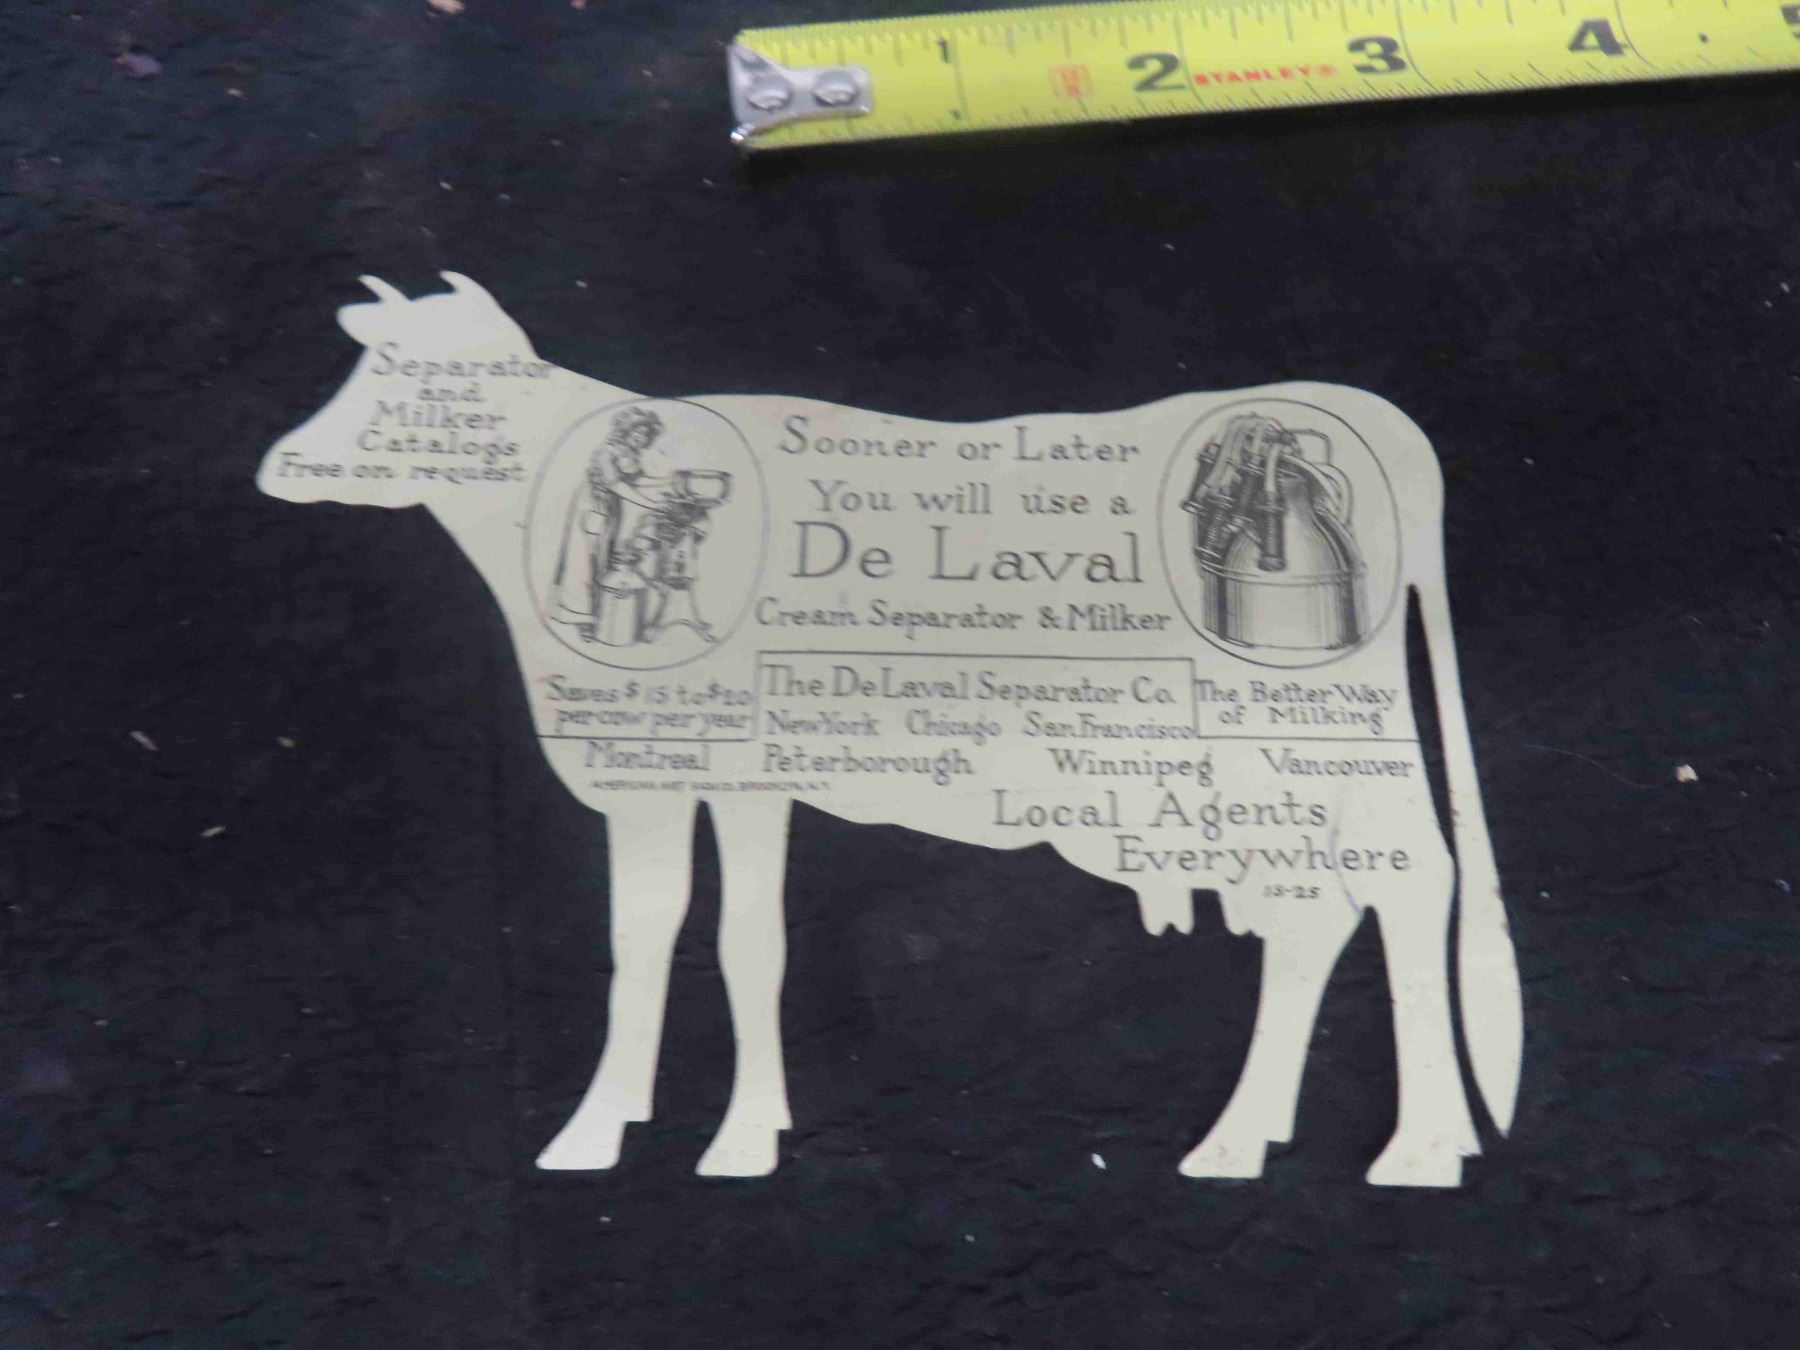 1 2 STANLEY® 3 4 5
Separator
and
Milker
Catalogs
Free on request
Sooner or Later
You will use a
De Laval
Cream Separator & Milker
Saves $15 to $20
per cow per year
The De Laval Separator Co.
New York Chicago San Francisco
The Better Way
of Milking
Montreal Peterborough Winnipeg Vancouver
AMERICAN ART BROOKLYN, N.Y.
Local Agents
Everywhere